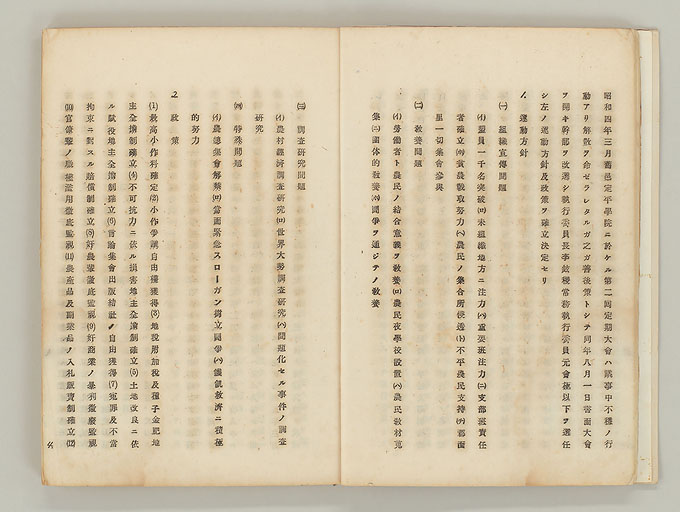 昭和四年三月舊邑定平學院ニ於ケル第二回定期大會ハ議事中不穩ノ行
動アリ解散ヲ命ゼラレタルガ之ガ善後策トシテ同年八月一日書面大會
ヲ開キ幹部ヲ改選シ執行委員長李
シ左ノ運動方針及政策ヲ確立決定セリ
1、運動方針
㈠ 組織宣傳問題
(イ)盟員一千名突破(ロ)未組織地方ニ注力(ハ)重要班注力(ニ)支部班責任
者確立(ホ)貧農獲取努力(ヘ)農民ノ集合所優遇(ト)不平農民支持(チ)郡面
里一切集會參與
㈡ 教養問題
(イ)勞働者ト農民ノ結合意義ヲ教養(ロ)農民夜學校設置(ハ)農民教材蒐
集(ニ)團体的教養(ホ)鬪爭ヲ通ジテノ教養
㈢ 調査研究問題
(イ)農村經濟調査研究(ロ)世界大勢調査研究(ハ)問題化セル事件ノ調査
研究
㈣ 特殊問題
(イ)農總集會解禁(ロ)當面緊急スローガン樹立鬪爭(ハ)饑飢救濟ニ積極
的努力
2、政策
(1)最高小作料確定(2)小作爭議自由獲得(3)地稅附加稅及種子金肥地
主全擔制確立(4)不可抗力ニ依ル損害地主全擔制確立(5)土地改良ニ依
ル賦役地主全擔制確立(6)言論集會出版結社ノ自由獲得(7)冤罪及不當
拘束ニ對スル賠償制確立(8)奸農輩徹底監視(9)奸商業ノ暴利徹底監視
(10)官僚輩ノ職權濫用徹底監視(11)農產品及副業品ノ入札販賣制確立(12)